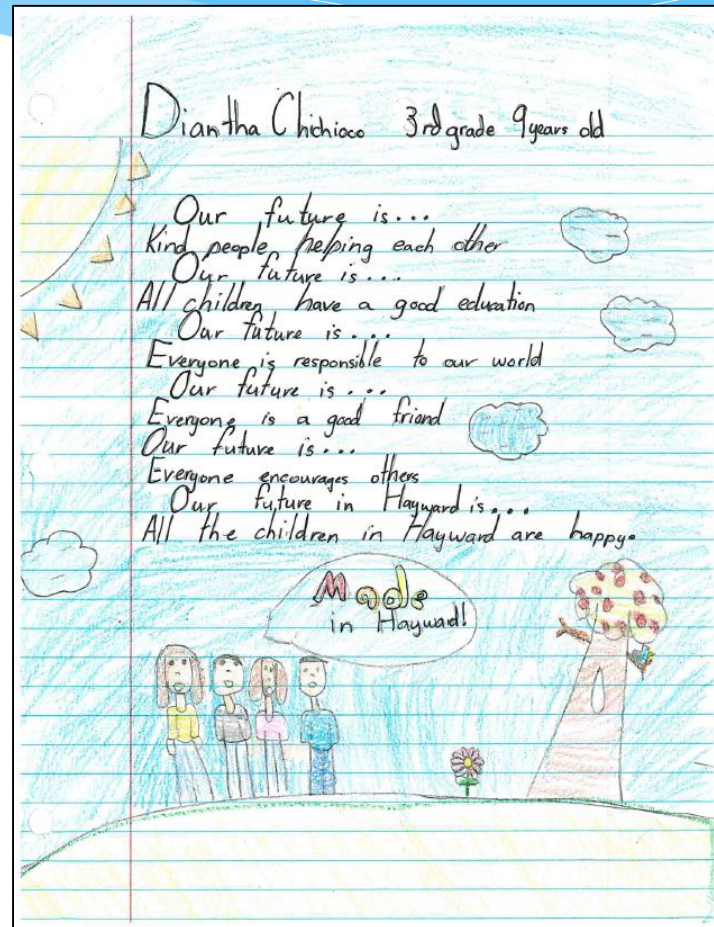 Diantha Chichioco 3rd grade 9 years old
Our future is...
Kind people helping each other
Our future is...
All children have a good education
Our future is...
Everyone is responsible to our world
Our future is...
Everyone is a good friend
Our future is...
Everyone encourages others
Our future in Hayward is...
All the children in Hayward are happy.
Made
in Hayward!